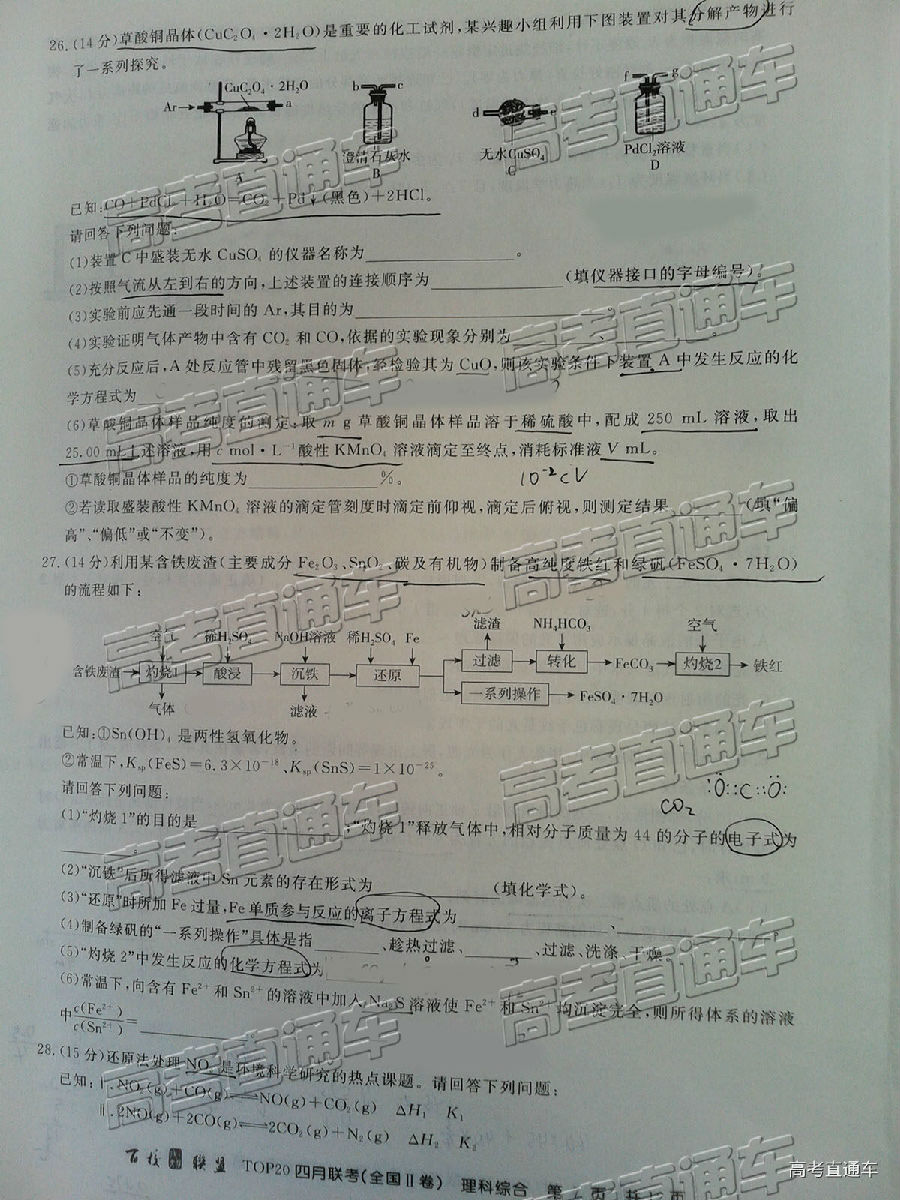 26.(14分)草酸铜晶体(CuC₂O₄·2H₂O)是重要的化工试剂,某兴趣小组利用下图装置对其分解产物进行
了一系列探究。
CuC₂O₄·2H₂O
Ar a
b c
d e
f g
澄清石灰水
无水CuSO₄
PdCl₂溶液
A B C D
已知:CO+PdCl₂+H₂O=CO₂+Pd↓(黑色)+2HCl。
请回答下列问题:
(1)装置C中盛装无水CuSO₄的仪器名称为 。
(2)按照气流从左到右的方向,上述装置的连接顺序为 (填仪器接口的字母编号)。
(3)实验前应先通一段时间的Ar,其目的为 。
(4)实验证明气体产物中含有CO₂和CO,依据的实验现象分别为
(5)充分反应后,A处反应管中残留黑色固体,经检验其为CuO,则该实验条件下装置A中发生反应的化
学方程式为
(6)草酸铜晶体样品纯度的测定,取m g草酸铜晶体样品溶于稀硫酸中,配成250 mL溶液,取出
25.00 mL上述溶液,用c mol·L⁻¹酸性KMnO₄溶液滴定至终点,消耗标准液V mL。
①草酸铜晶体样品的纯度为 %。 10⁻²cV
②若读取盛装酸性KMnO₄溶液的滴定管刻度时滴定前仰视,滴定后俯视,则测定结果 (填“偏
高”、“偏低”或“不变”)。
27.(14分)利用某含铁废渣(主要成分Fe₂O₃、SnO₂、碳及有机物)制备高纯度铁红和绿矾(FeSO₄·7H₂O)
的流程如下:
空气 稀H₂SO₄ NaOH溶液 稀H₂SO₄ Fe 滤渣 NH₄HCO₃ 空气
含铁废渣 灼烧1 酸浸 沉铁 还原 过滤 转化 FeCO₃ 灼烧2 铁红
一系列操作 FeSO₄·7H₂O
气体 滤液
已知:①Sn(OH)₄是两性氢氧化物。
②常温下,Ksp(FeS)=6.3×10⁻¹⁸、Ksp(SnS)=1×10⁻²⁵。
请回答下列问题:
CO₂ :Ö::C::Ö:
(1)“灼烧1”的目的是 ;“灼烧1”释放气体中,相对分子质量为44的分子的电子式为
。
(2)“沉铁”后所得滤液中Sn元素的存在形式为 (填化学式)。
(3)“还原”时所加Fe过量,Fe单质参与反应的离子方程式为 、
(4)制备绿矾的“一系列操作”具体是指 、趁热过滤、 、过滤、洗涤、干燥。
(5)“灼烧2”中发生反应的化学方程式为
(6)常温下,向含有Fe²⁺和Sn²⁺的溶液中加入Na₂S溶液使Fe²⁺和Sn²⁺均沉淀完全,则所得体系的溶液
中c(Fe²⁺)/c(Sn²⁺)=
28.(15分)还原法处理NOₓ是环境科学研究的热点课题。请回答下列问题:
已知:Ⅰ.NO₂(g)+CO(g)⇌NO(g)+CO₂(g) ΔH₁ K₁
Ⅱ.2NO(g)+2CO(g)⇌2CO₂(g)+N₂(g) ΔH₂ K₂
百校联盟 TOP20四月联考(全国Ⅱ卷) 理科综合 第 页 共 页
高考直通车